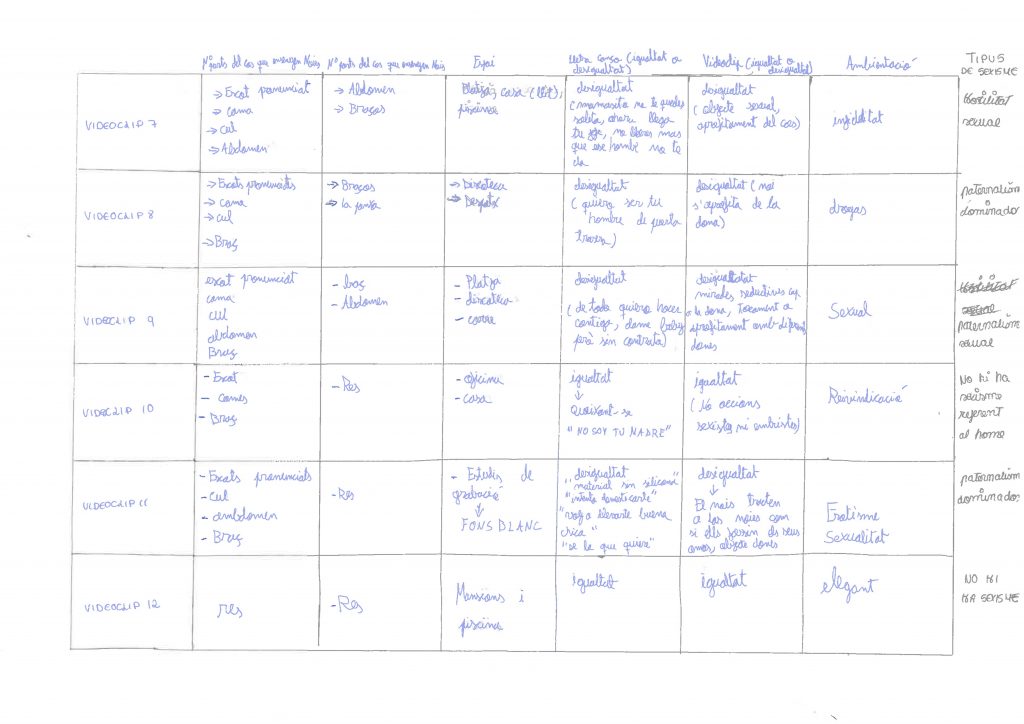 Nº parts del cos que ensenyen Noies
Nº parts del cos que ensenyen Nois
Espai
lletra cançó (igualtat o
desigualtat)
Videoclip (igualtat o
desigualtat)
Ambientació
TIPUS
DE SEXISME
VIDEOCLIP 7
→ Escot pronunciat
→ cama
→ cul
→ Abdomen
→ Abdomen
→ Braços
Platja, casa (llit),
piscina
desigualtat
(mamasita no te quedes
solita, ahora llega
tu jefe, no llores mas
que ese hombre no te
da
desigualtat
(objecte sexual,
aprofitament del cos)
infidelitat
Hostilitat
sexual
VIDEOCLIP 8
→ Escots pronunciats
→ cama
→ cul
→ Braç
→ Braços
→ la panxa
→ Discoteca
→ Despatx
desigualtat
(quiero ser tu
hombre de puerta
trasera)
desigualtat (noi
s'aprofita de la
dona)
drogas
paternalism
dominador
VIDEOCLIP 9
escot pronunciat
cama
cul
abdomen
Braç
- braç
- Abdomen
- Platja
- discoteca
- carrer
desigualtat
(de todo quiero hacer
contigo, dame baby
però sen contrata)
desigualtat
mirades seductives cap
a la dona, tocament o
aprofitament amb diferents
dones
Sexual
Hostilitat
sexual
paternalism
sexual
VIDEOCLIP 10
- Escot
- cames
- Braç
- Res
- oficina
- casa
igualtat
↓
Queixant-se
"NO SOY TU MADRE"
igualtat
(No accions
sexistes ni embristes)
Reivindicació
No hi ha
sexisme
referent
al home
VIDEOCLIP 11
- Escots pronunciats
- cul
- ambdomen
- Braç
- Res
- Estudis de
grabació
↓
FONS BLANC
desigualtat
"material son silicona"
"intento domesticarte"
"voy a llevarte buena
chica"
"se la que quiere"
desigualtat
↓
El nois tracten
a les noies com
si ells fossin els seus
amos, objecte dones
Erotisme
Sexualitat
paternalism
dominador
VIDEOCLIP 12
res
- Res
Mansions i
piscina
igualtat
igualtat
elegant
NO HI
HA SEXISME